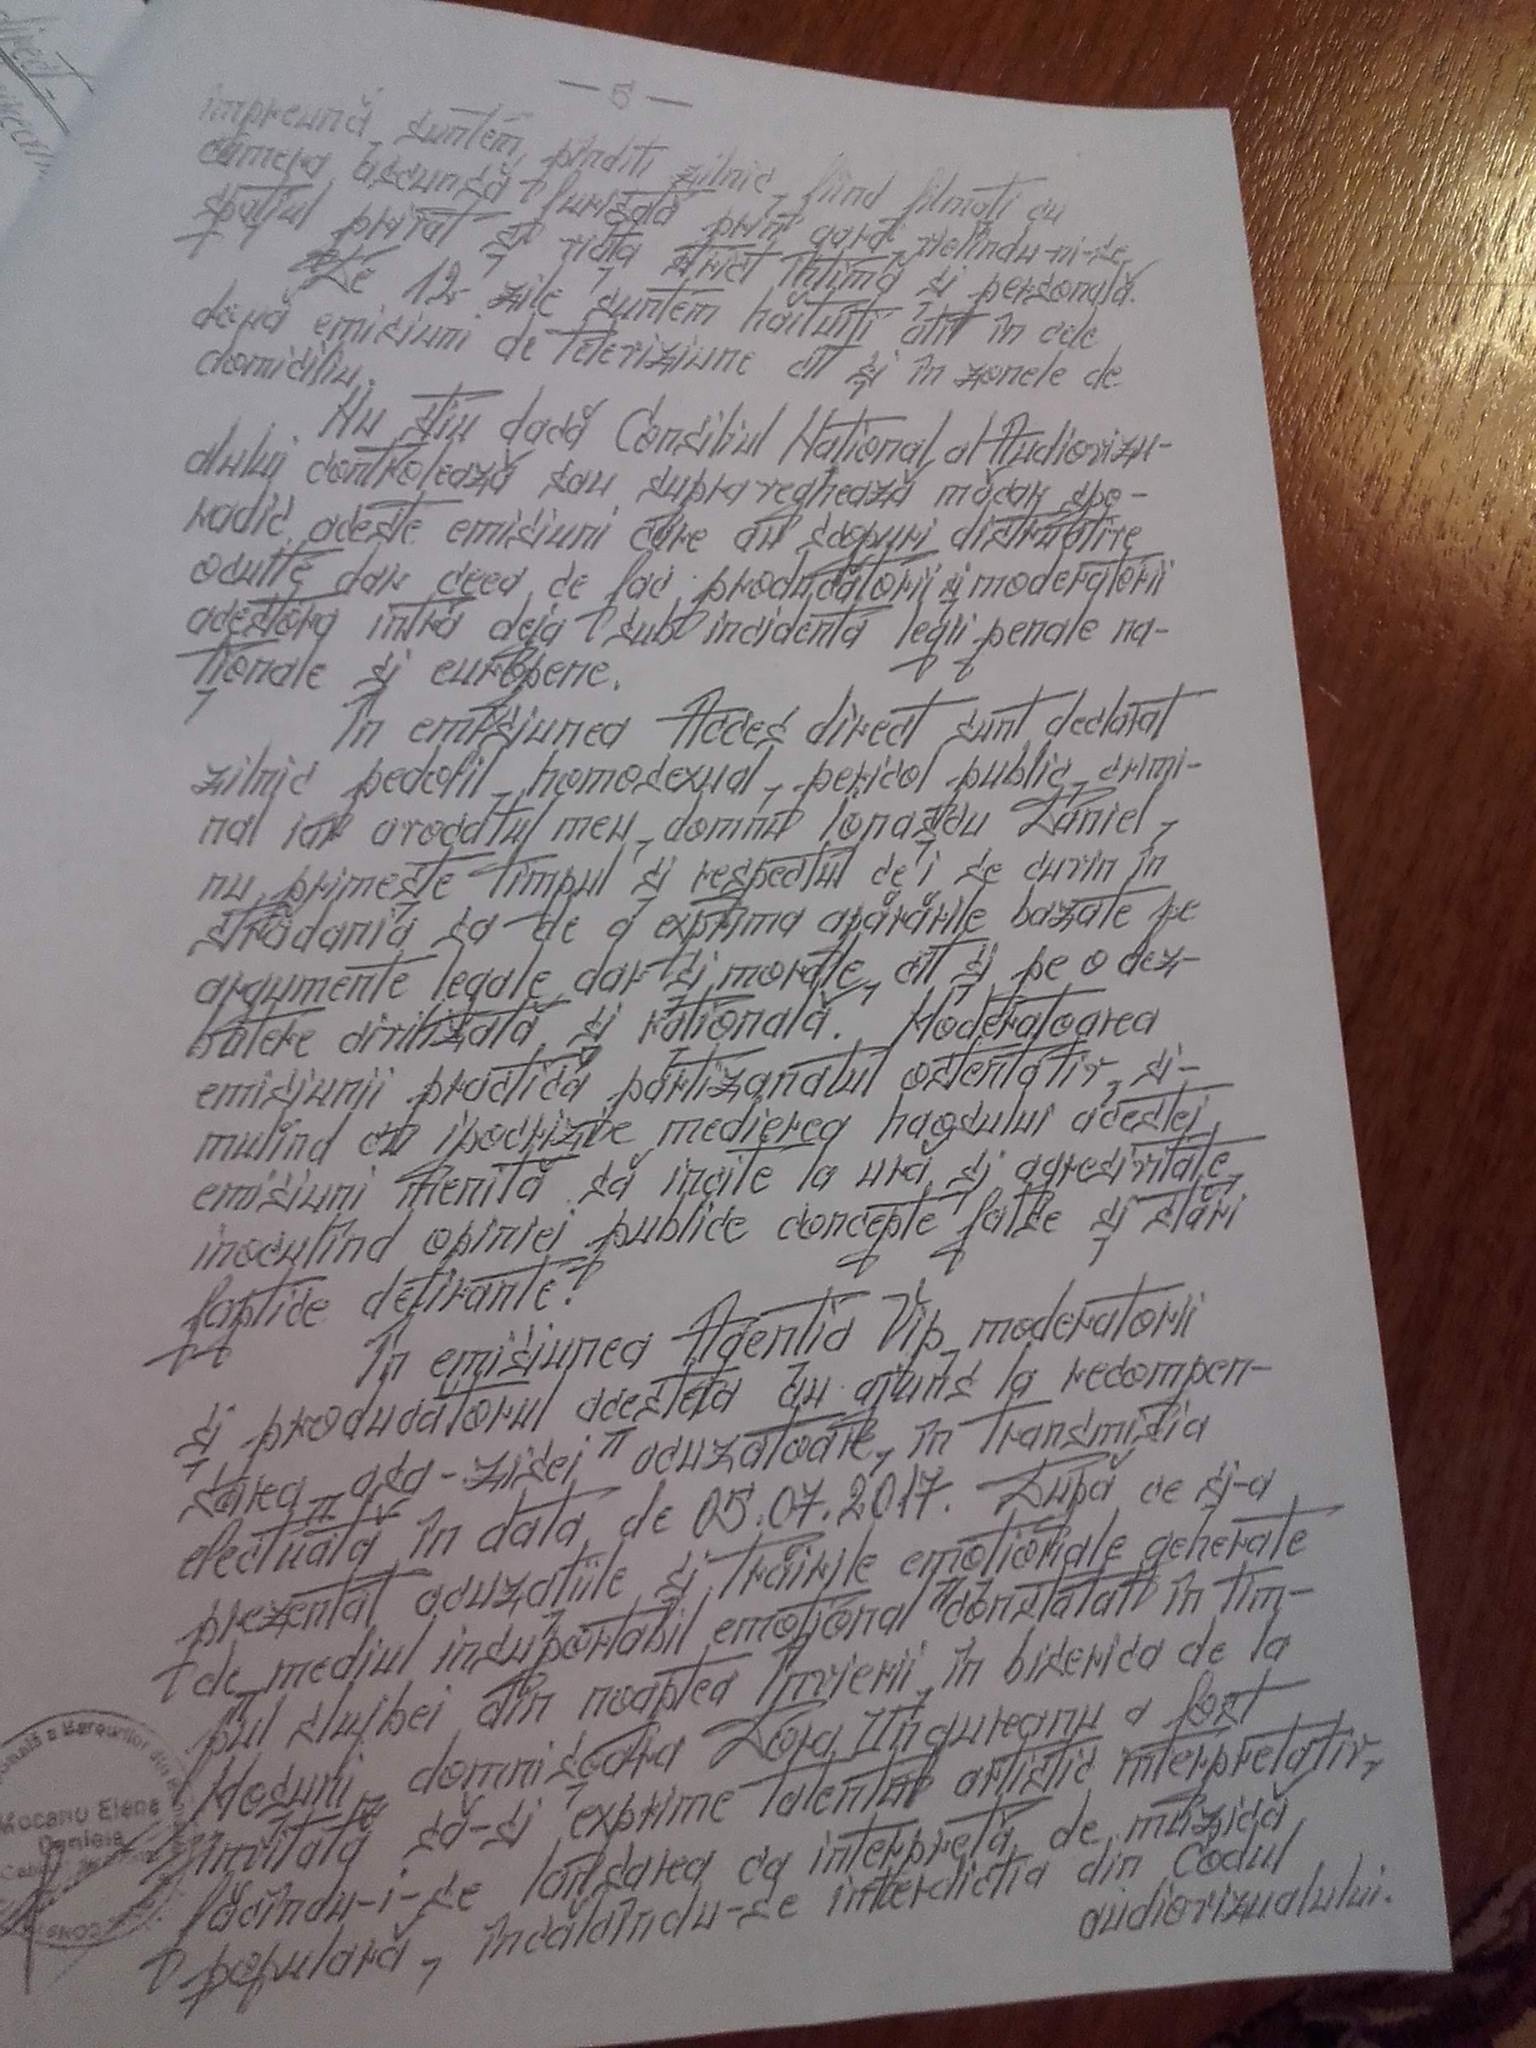 — 5 —
împreună suntem pîndiți zilnic, fiind filmați cu
camera ascunsă, furișată prin gard, violîndu-ni-se
spațiul privat și viața strict intimă și personală.
De 12 zile suntem hăituiți atît în cele
două emisiuni de televiziune cît și în zonele de
domiciliu.
Nu știu dacă Consiliul Național al Audiovizu-
alului controlează sau supraveghează măcar spo-
radic aceste emisiuni care au scopuri distructive
oculte dar ceea ce fac producătorii și moderatorii
acestora intră deja sub incidenta legii penale na-
ționale și europene.
În emisiunea Acces direct sunt declarat
zilnic pedofil, homosexual, pericol public, crimi-
nal iar avocatul meu, domnul Ionașcu Daniel,
nu primește timpul și respectul ce i se cuvin în
strădania sa de a exprima apărările bazate pe
argumente legale dar și morale, cît și pe o dez-
batere civilizată și rațională. Moderatoarea
emisiunii practică partizanatul ostentativ, si-
mulînd cu ipocrizie medierea haosului acestei
emisiuni menită să incite la ură și agresivitate,
inoculînd opiniei publice concepte false și stări
faptice delirante!
În emisiunea Agentia Vip, moderatorii
și producătorul acesteia au ajuns la recompen-
sarea așa-zisei "acuzatoare", în transmisia
efectuată în data de 05.07.2017. După ce și-a
prezentat acuzațiile și trăirile emoționale generate
de mediul insuportabil emoțional "constatat" în tim-
pul slujbei din noaptea Învierii, în biserica de la
Hoduni, domnișoara Dora Ungureanu a fost
invitată să-și exprime talentul artistic interpretativ,
făcîndu-i-se lansarea ca interpretă de muzică
populară, încălcîndu-se interdictia din Codul
audiovizualului.
Mocanu Elena
Daniela